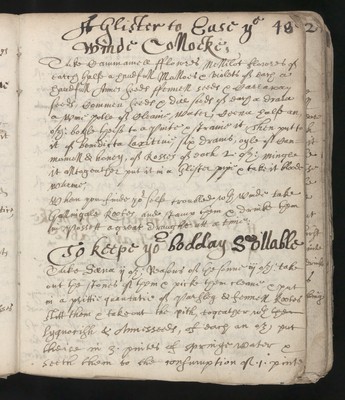 A Glister to Ease ye 48
Winde Collocke,
Take Cammamell fflowres Mellilot flowres of
Each halfe a handfull Mallows & violets of Each a
handfull Annis seeds fennell seeds & Carraway
seeds Commen seeds & Dill seeds of Each a dram
a wine pottle of Cleane Water
it to a pinte & straine it then put to
it of benedicta Laxative six drams, oyle of Cam
mamell & honey, of Roses of each 2 oz mingle
it altogeather put it in a Glister pipe take it blood
warme.
When you finde yr selfe troubled with Winde take
Galangale Rootes and stamp them & drinke them
in Possett a great Dram att a time
To keepe yor bodday Sollable
Take Sena 4 oz Reasons of the sunne 4 oz take
out the stones of them & picke them cleane & put
in a prittie quantatie of parsley & fennell Rootes
slitt them & take out the pith, togeather with them
Lyquorish & Anniseeds, of each an oz put
these in 3 pintes of springe water &
seeth them to the consumption of 1 pinte